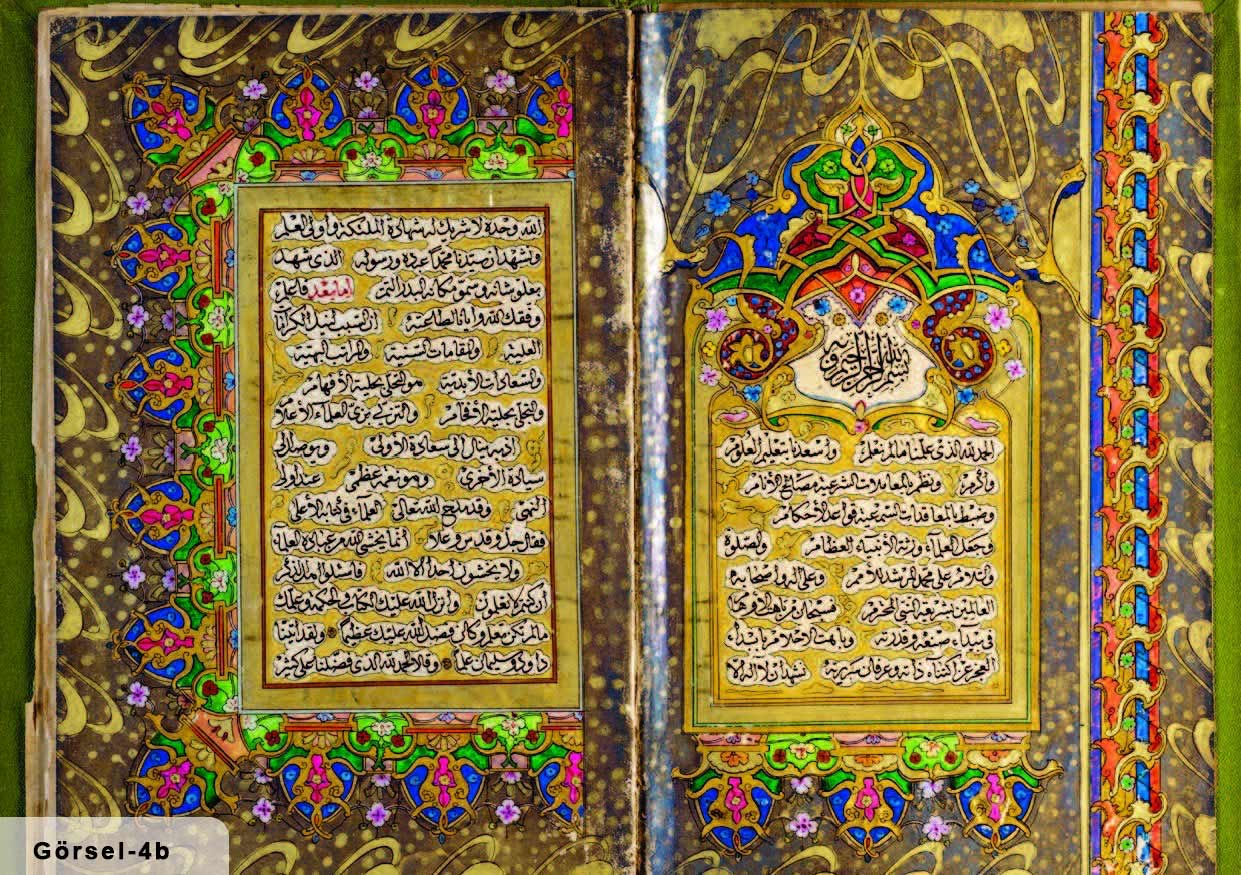 بسم الله الرحمن الرحيم
الحمد لله الذى علمنا ما لم نعلم واسعدنا بتعليم العلوم
واكرم ونظم بالمعاملات الشرعية مصالح الانام
وضبط بالمعاقدات الشرعية قواعد الاحكام
وجعل العلماء ورثة الانبياء العظام والصلوة
والسلام على محمد المرشد للامم وعلى اله واصحابه
العالمين بشريعة النبى المحترم
فى بيداء وقدرته
العجز عن اكتناه ذاته وعرفان سريرته نشهد ان لا اله الا
الله وحده لا شريك له شهادة الملئكة واولى العلم
ونشهد ان سيدنا محمدا عبده ورسوله الذى شهد
بعلو شانه وسمو مكانه البدر التم اما بعد فاعلم
وفقك الله وايانا لطاعته ان السبب لنيل الكرامات
العلية والمقامات السنية والمراتب البهية
والسعادات الابدية هو التحلى بحلية الافهام
والتجلى بجلية الاقلام والتزيى بزى العلماء الاعلام
اذ به ينال الى سعادة الاولى وبه يوصل الى
سيادة الاخرى وهو نعمة عظمى عند اولى
النهى وقد مدح الله تعالى العلماء فى كتابه الاعلى
فقال جل وقدس وعلا انما يخشى الله من عباده العلماء
ولا يخشون احدا الا الله فاسئلوا اهل الذكر
ان كنتم لا تعلمون وانزل الله عليك الكتاب والحكمة وعلمك
ما لم تكن تعلم وكان فضل الله عليك عظيما ولقد اتينا
داود وسليمان علما وقالا الحمد لله الذى فضلنا على كثير
Görsel-4b